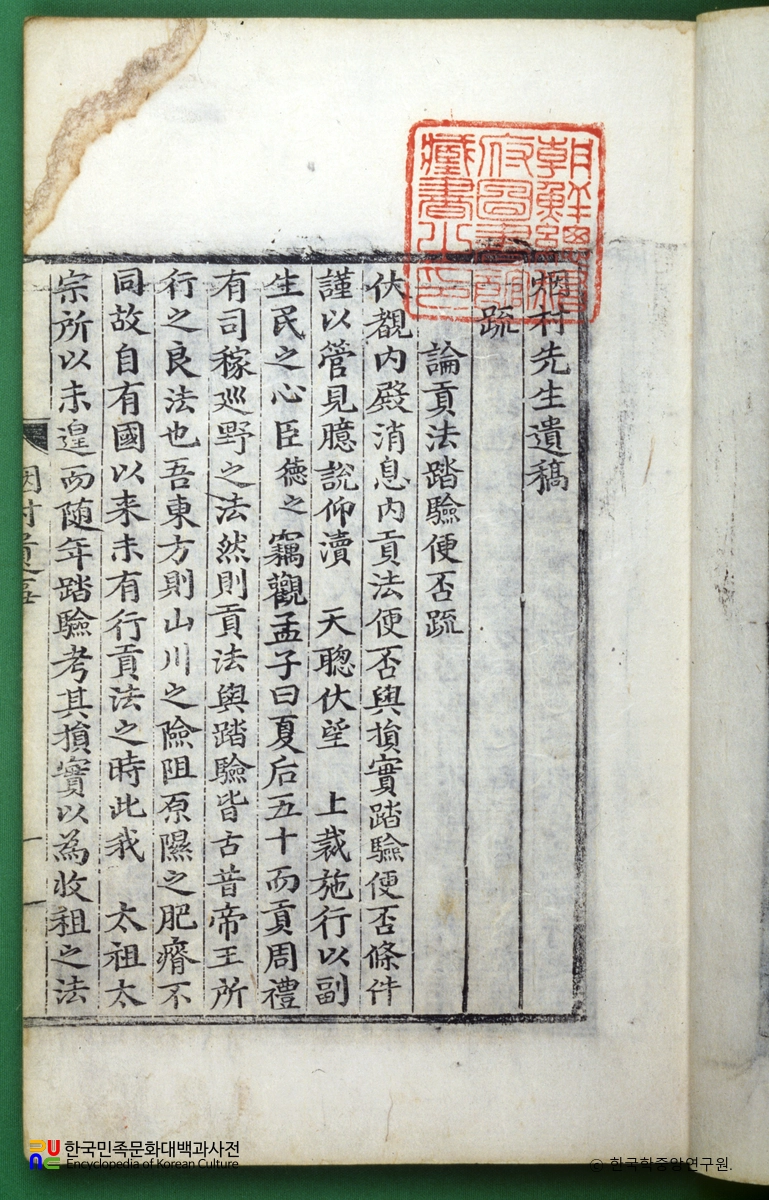 烟村先生遺稿
疏
論貢法踏驗便否疏
伏覩內殿消息內貢法便否與損實踏驗便否條件
謹以管見臆說仰瀆 天聰伏望 上裁施行以副
生民之心臣德之竊觀孟子曰夏后五十而貢周禮
有司稼巡野之法然則貢法與踏驗皆古昔帝王所
行之良法也吾東方則山川之險阻原隰之肥瘠不
同故自有國以来未有行貢法之時此我 太祖太
宗所以未遑而随年踏驗考其損實以為收租之法
烟村遺事
一
朝鮮總督
府圖書館
藏書之印
한국민족문화대백과사전
Encyclopedia of Korean Culture
© 한국학중앙연구원.